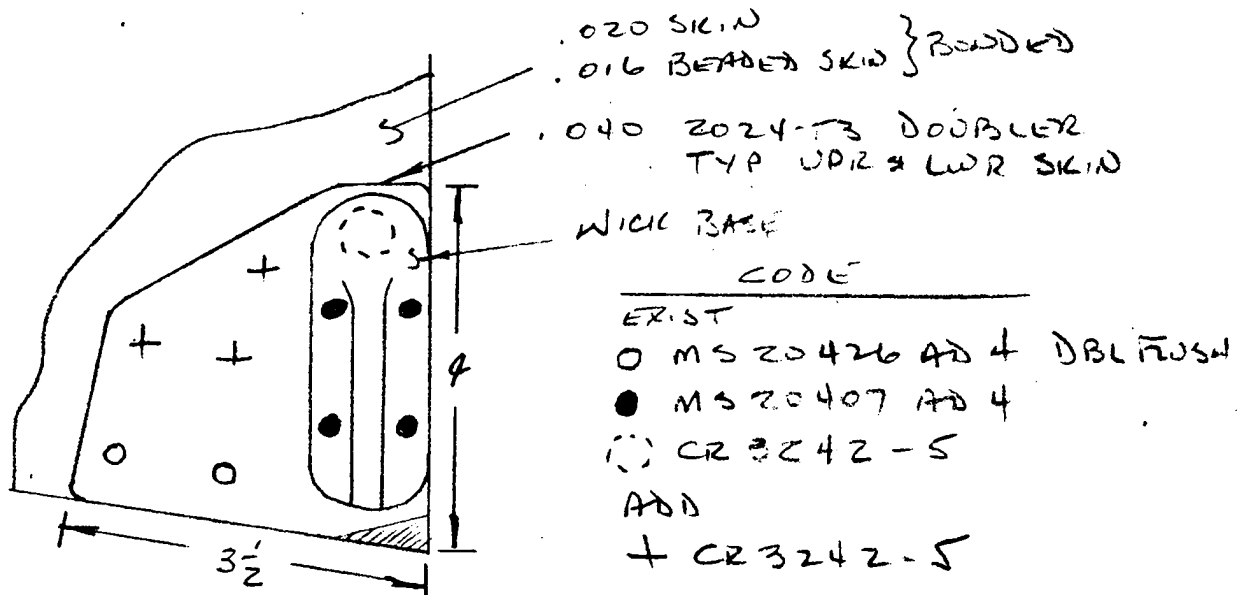 .020 SKIN
.016 BEADED SKIN } BONDED
.040 2024-T3 DOUBLER
TYP UPR & LWR SKIN
WICK BASE
CODE
EXIST
O MS 20426 AD 4 DBL FLUSH
● MS 20407 AD 4
CR 3242-5
ADD
+ CR 3242-5
4
3 1/2